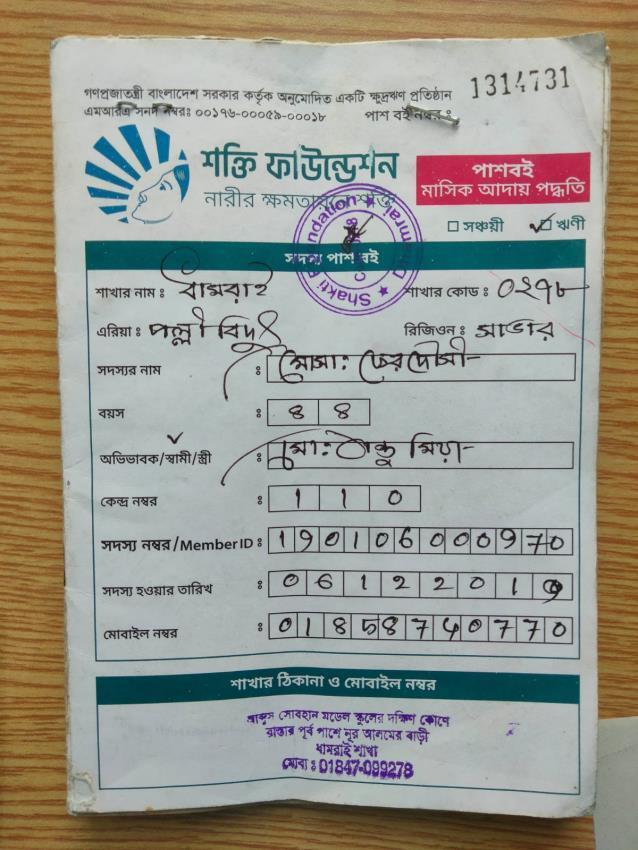 1314731
গণপ্রজাতন্ত্রী বাংলাদেশ সরকার কর্তৃক অনুমোদিত একটি ক্ষুদ্রঋণ প্রতিষ্ঠান
এমআরএ সনদ নম্বরঃ ০০১৭৬-০০০৫৯-০০০১৮ পাশ বই নম্বর ঃ
শক্তি ফাউন্ডেশন
নারীর ক্ষমতায়নে শক্তি
পাশবই
মাসিক আদায় পদ্ধতি
সঞ্চয়ী ঋণী
সদস্য পাশ বই
Shakti Foundation Dhamrai
শাখার নাম ঃ ধামরাই শাখার কোড ঃ ০২৭৮
এরিয়া ঃ পল্লী বিদ্যুৎ রিজিওন ঃ সাভার
সদস্যর নাম ঃ মোসা: ফেরদৌসী
বয়স ঃ 88
অভিভাবক/স্বামী/স্ত্রী ঃ মো: ঠান্ডু মিয়া
কেন্দ্র নম্বর ঃ 110
সদস্য নম্বর/Member ID ঃ 1901060000970
সদস্য হওয়ার তারিখ ঃ 06122019
মোবাইল নম্বর ঃ 01858740770
শাখার ঠিকানা ও মোবাইল নম্বর
সোবহান মডেল স্কুলের দক্ষিণ কোণে
রাস্তার পূর্ব পাশে নূর আলমের বাড়ী
ধামরাই শাখা
মোবা ঃ 01847-099278